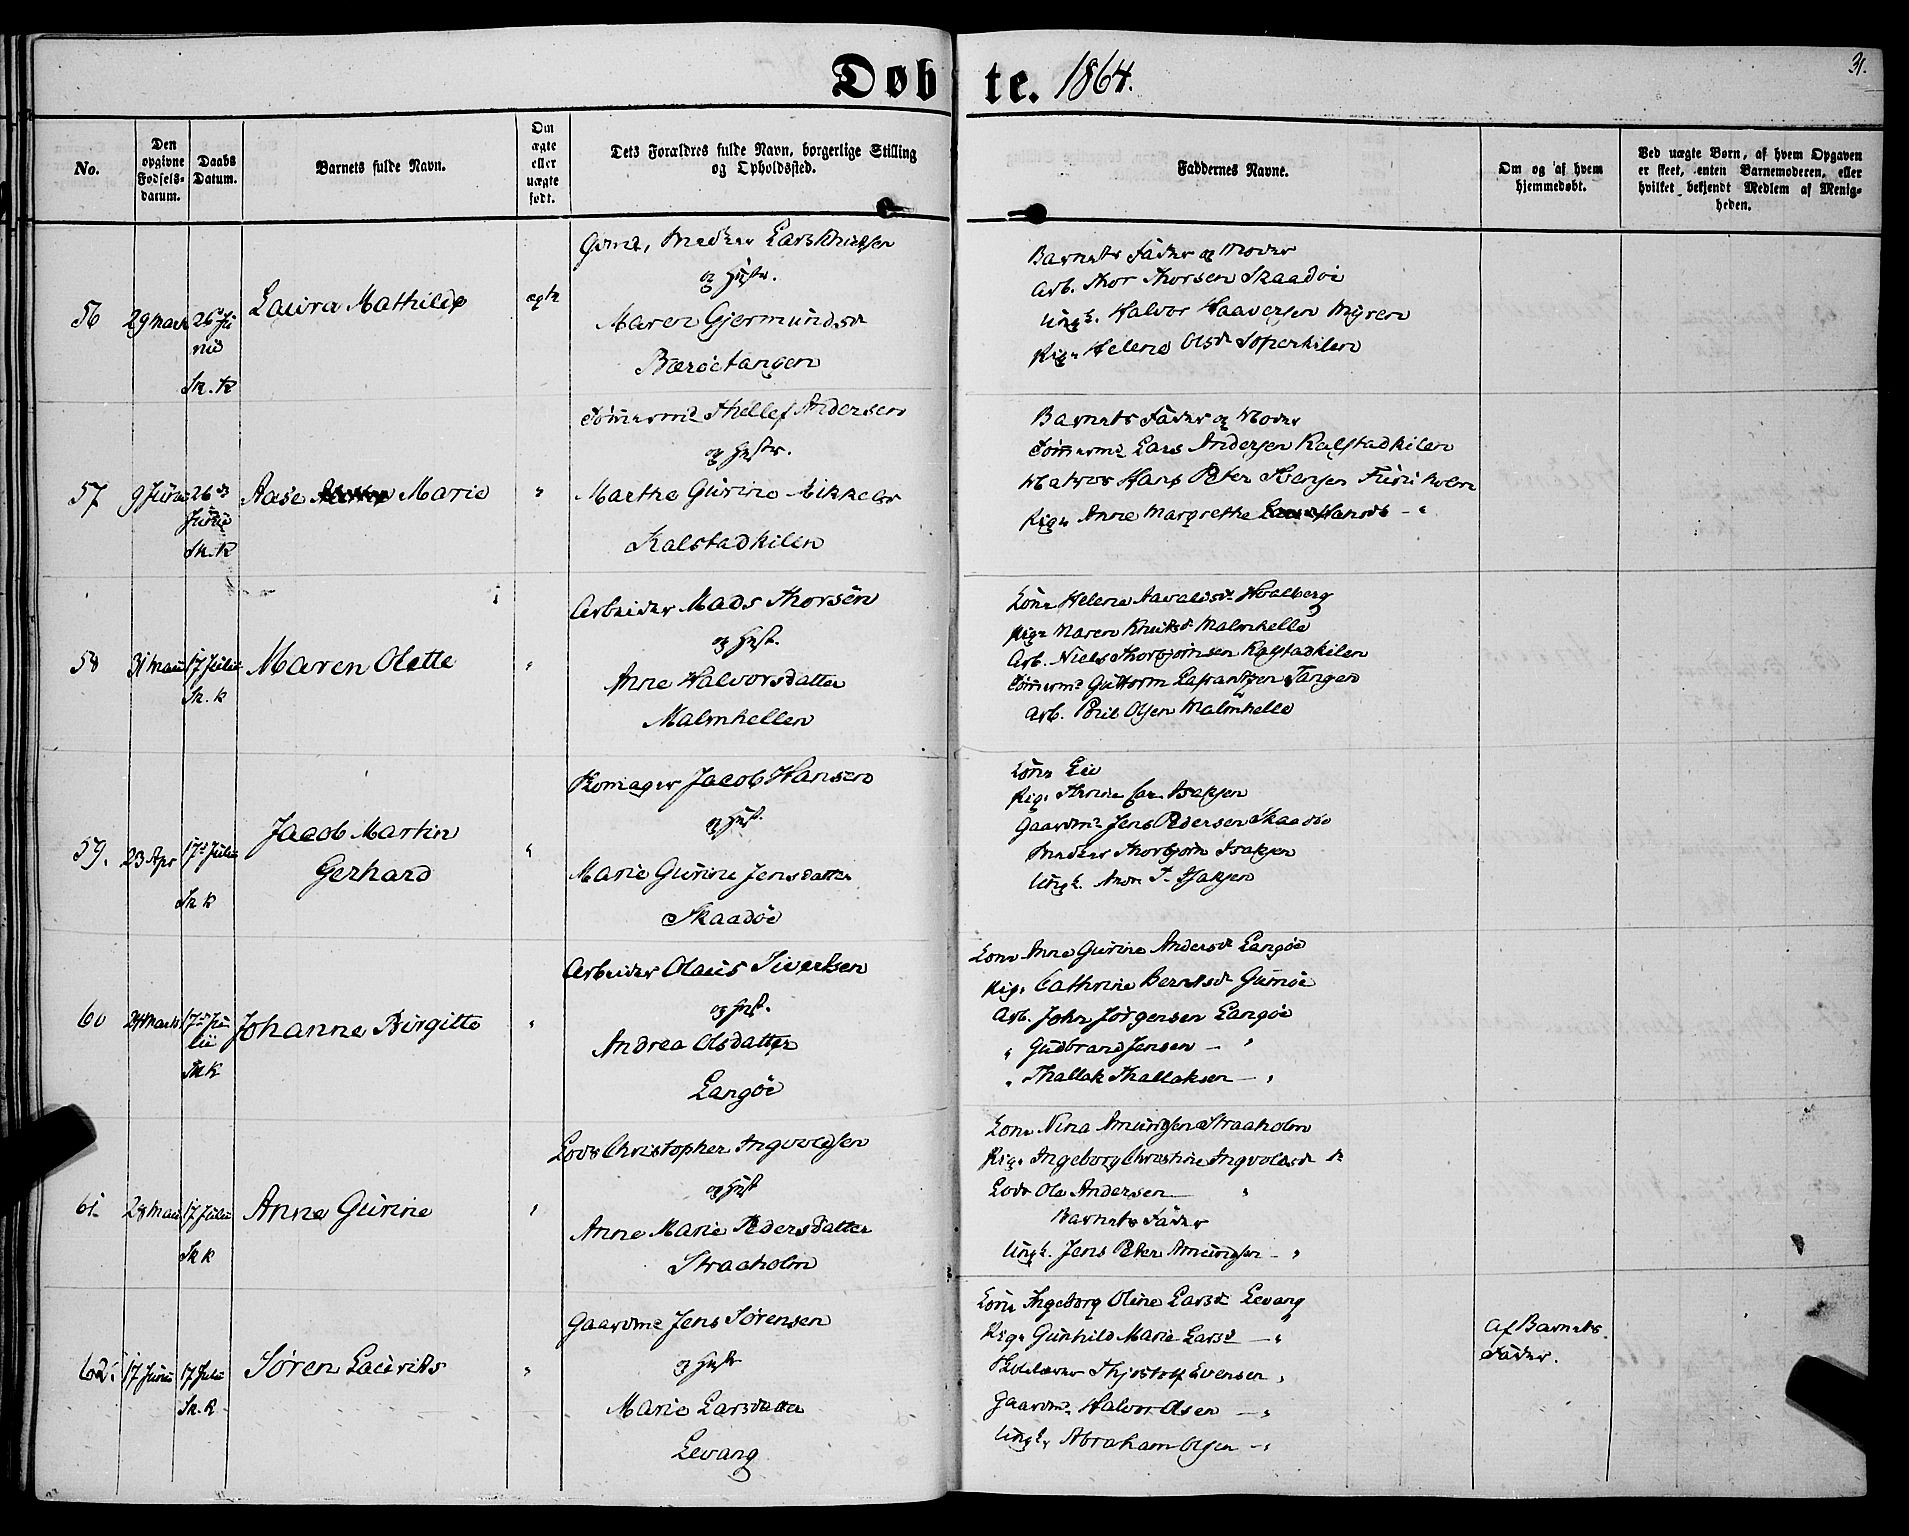 Døbte. 1864.
31.
No.
Den opgivne Fødselsdatum.
Daabs Datum.
Barnets fulde Navn.
Om ægte eller uægte født.
Dets Forældres fulde Navn, borgerlige Stilling og Opholdssted.
Faddernes Navne.
Om og af hvem hjemmedøbt.
Ved uægte Børn, af hvem Opgaven er skeet, enten Barnemoderen, eller hvilket bekjendt Medlem af Menigheden.
56
29 Marts
26d Ju
nii
Sk. K
Laura Mathilde
ægte
Lars Knudsen
og Hustr.
Maren Gjermundsd
Barøetangen
Barnets Fader og Moder
Arb. Thor Thorsen Skaadøe
Ungk. Halvor Haaversen Myren
Pige Helene Olsd
57
9 Junii
26d
Junii
Sk. K
Aase Marie
"
Tømmermd Thellef Andersen
og Hustr.
Marthe Gurine Mikkelsd
Kalstadkilen
Barnets Fader og Moder
Tømmermd Lars Andersen Kalstadkilen
Matros Hans Peter Hansen Furuholm
Pige Anne Margrethe Hansd - "
58
31 Maii
17 Julii
Sk. K
Maren Olette
"
Arbeider Mads Thorsen
og Hust.
Anne Halvorsdatter
Malmhellen
Kone Helene Aavaldsd Hvalberg
Pige Maren Knutsd Malmhelle
Arb. Niels Thorbjørnsen Kalstadkilen
Tømmermd Guttorm Lafrantzen Tangen
Arb. Poul Olsen Malmhelle
59.
23 Apr
17d Julii
Sk K
Jacob Martin
Gerhard
"
Skomager Jacob Hansen
og Hust.
Marie Gurine Jensdatter
Skaadøe
Kone Lie
Pige Isaksen
Gaardmd Jens Pedersen Skaadøe
Snedker Thorbjørn Isaksen
Ungk. Isaksen
60
24 Marts
17d Ju
lii
Sk K
Johanne Birgitte
"
Arbeider Olaus Sivertsen
og Hust.
Andrea Olsdatter
Langøe
Kone Anne Gurine Andersd Langøe
Pige Cathrine Berntsd Gumøe
Arb. John Jørgensen Langøe
" Gudbrand Jensen - "
" Thallak Thallaksen - "
61
28 Maii
17 Julii
Sk K
Anne Gurine
"
Lods Christopher Ingvoldsen
og Hust
Anne Marie Pedersdatter
Straaholm
Kone Nina Amundsen Straaholm
Pige Ingeborg Christine Ingvoldsd "
Lods Ole Andersen "
Barnets Fader
Ungk. Jens Peter Amundsen - "
62
17 Junii
17 Julii
Sk. K
Søren Laurits
"
Gaardmd Jens Sørensen
og Hustr
Marie Larsdatter
Levang
Kone Ingeborg Oline Larsd Levang
Pige Gunhild Marie Larsd - "
Skolelærer Thjostolf Evensen "
Gaardmd Halvor Olsen - "
Ungk. Abraham Olsen - "
Af Barnets
Fader.